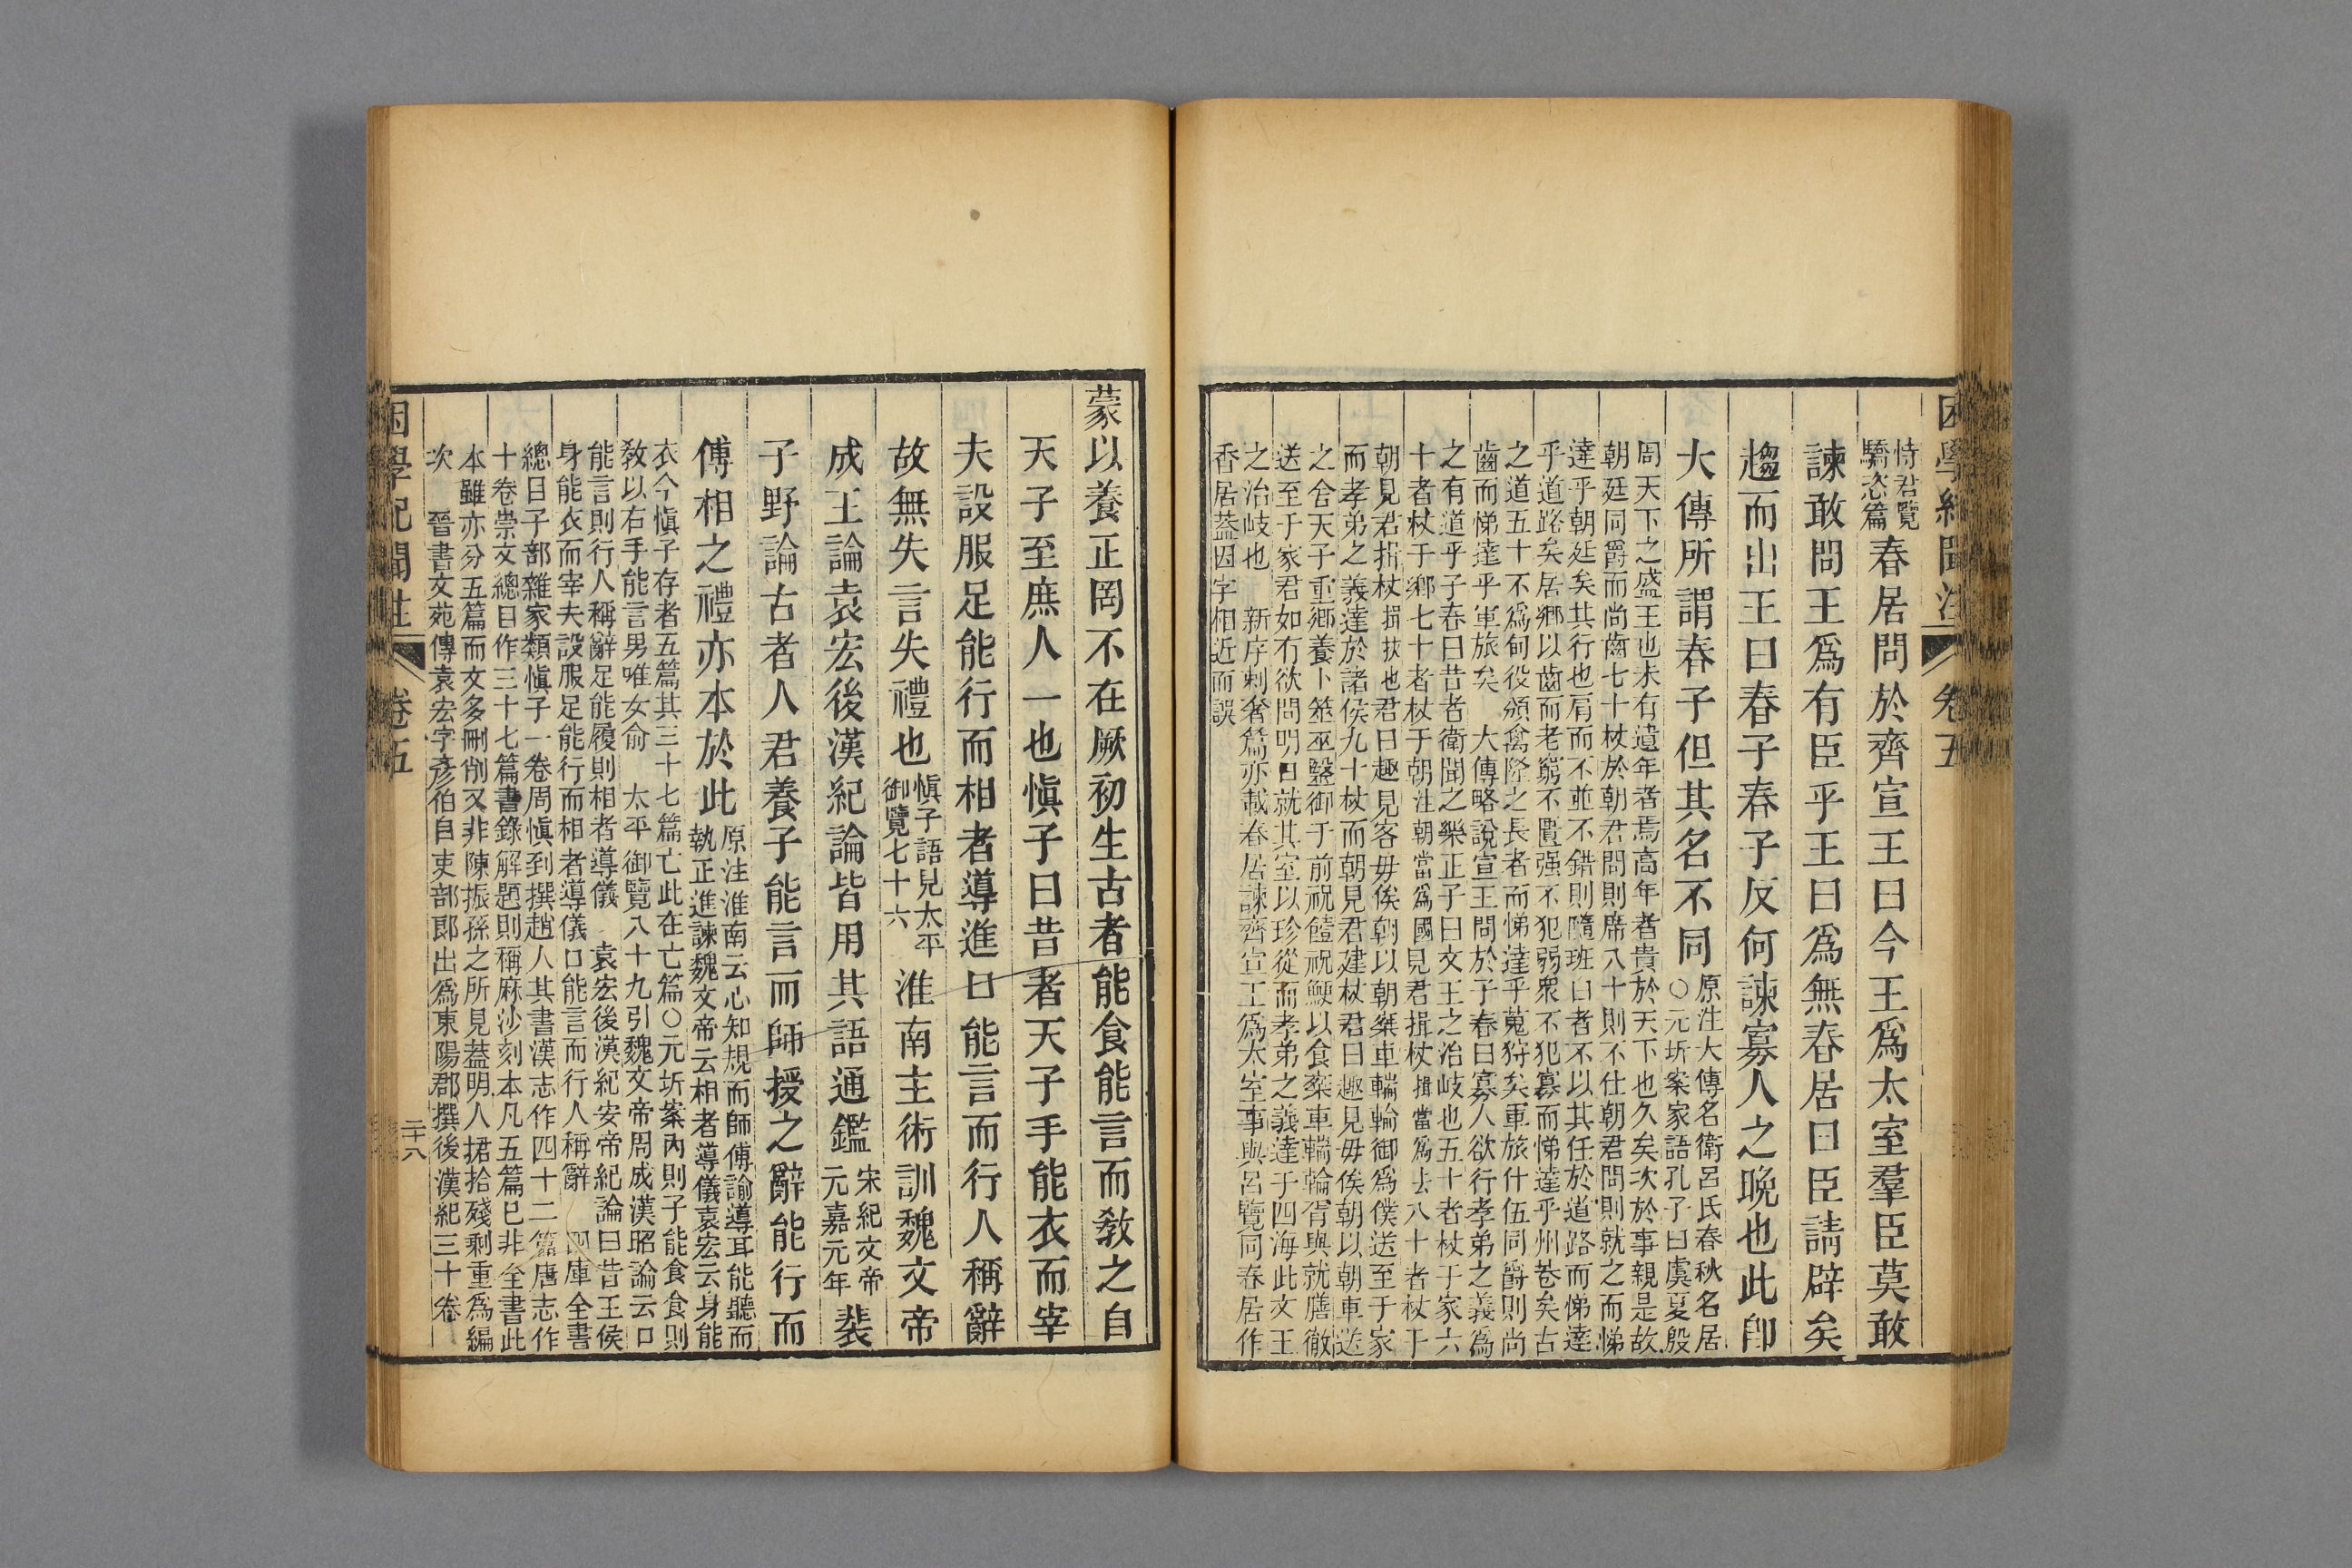 困學紀聞注 卷五
恃君覽
驕恣篇
春居問於齊宣王曰今王爲太室羣臣莫敢
諫敢問王爲有臣乎王曰爲無春居曰臣請辟矣
趨而出王曰春子春子反何諫寡人之晚也此卽
大傳所謂春子但其名不同
原注大傳名衛呂氏春秋名居
○元圻案家語孔子曰虞夏殷
周天下之盛王也未有遺年者焉高年者貴於天下也久矣次於事親是故
朝廷同爵而尚齒七十杖於朝君問則席八十則不仕朝君問則就之而悌
達乎朝廷矣其行也肩而不並不錯則隨斑白者不以其任於道路而悌達
乎道路矣居鄉以齒而老窮不匱强不犯弱衆不犯寡而悌達乎州巷矣古
之道五十不爲甸役頒禽隆之長者而悌達乎蒐狩矣軍旅什伍同爵則尚
齒而悌達乎軍旅矣 大傳略說宣王問於子春曰寡人欲行孝弟之義爲
之有道乎子春曰昔者衛聞之樂正子曰文王之治岐也五十者杖于家六
十者杖于鄉七十者杖于朝注朝當爲國見君揖杖揖當爲去八十者杖于
朝見君揖杖揖扶也君曰趣見客毋俟朝以朝椉車輲輪御爲僕送至于家
而孝弟之義達於諸侯九十杖而朝見君建杖君曰趣見毋俟朝以朝車送
之舍天子重鄉養卜筮巫毉御于前祝饐祝鯁以食椉車輲輪胥與就膳徹
送至于家君如有欲問明日就其室以珍從而孝弟之義達于四海此文王
之治岐也 新序刺奢篇亦載春居諫齊宣王爲大室事與呂覽同春居作
香居葢因字相近而誤
蒙以養正罔不在厥初生古者能食能言而敎之自
天子至庶人一也愼子曰昔者天子手能衣而宰
夫設服足能行而相者導進口能言而行人稱辭
故無失言失禮也
愼子語見太平
御覽七十六
淮南主術訓魏文帝
成王論袁宏後漢紀論皆用其語通鑑
宋紀文帝
元嘉元年
裴
子野論古者人君養子能言而師授之辭能行而
傅相之禮亦本於此
原注淮南云心知規而師傅諭導耳能聽而
執正進諫魏文帝云相者導儀袁宏云身能
衣今愼子存者五篇其三十七篇亡此在亡篇○元圻案內則子能食食則
敎以右手能言男唯女俞 太平御覽八十九引魏文帝周成漢昭論云口
能言則行人稱辭足能履則相者導儀 袁宏後漢紀安帝紀論曰昔王侯
身能衣而宰夫設服足能行而相者導儀口能言而行人稱辭 四庫全書
總目子部雜家類愼子一卷周愼到撰趙人其書漢志作四十二篇唐志作
十卷崇文總目作三十七篇書錄解題則稱麻沙刻本凡五篇已非全書此
本雖亦分五篇而文多刪削又非陳振孫之所見葢明人捃拾殘剩重爲編
次 晉書文苑傳袁宏字彥伯自吏部郞出爲東陽郡撰後漢紀三十卷
困學紀聞注 卷五 二十八